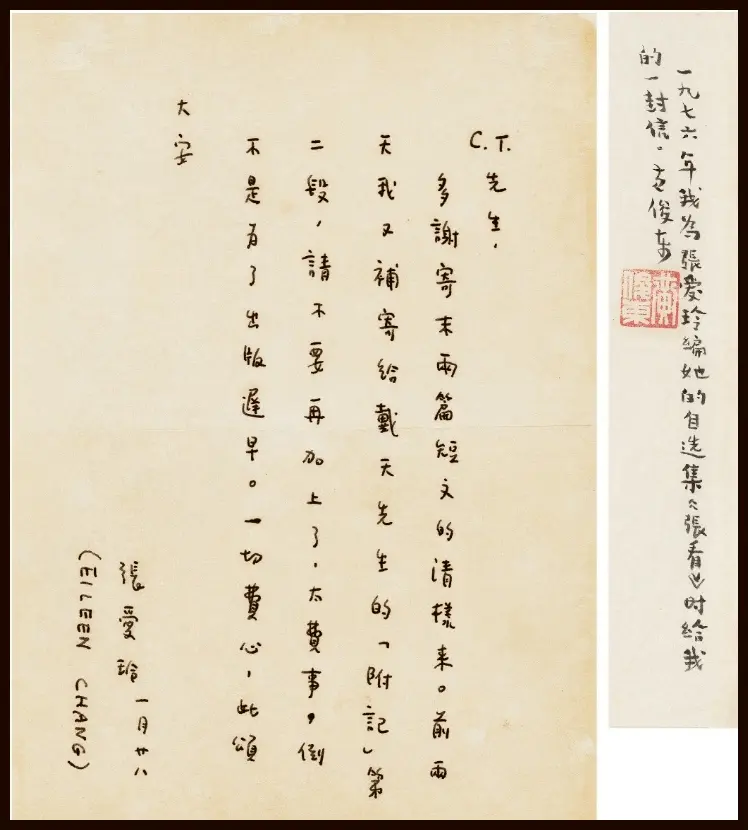 一九七六年我為張愛玲編她的自选集《張看》时給我
的一封信。黄俊东
黃俊東
C.T.先生，
多謝寄来兩篇短文的清樣来。前兩
天我又補寄給戴天先生的「附記」第
二段，請不要再加上了，太費事。倒
不是為了出版遲早。一切費心，此頌
大安
張愛玲 一月廿八
(EILEEN CHANG)